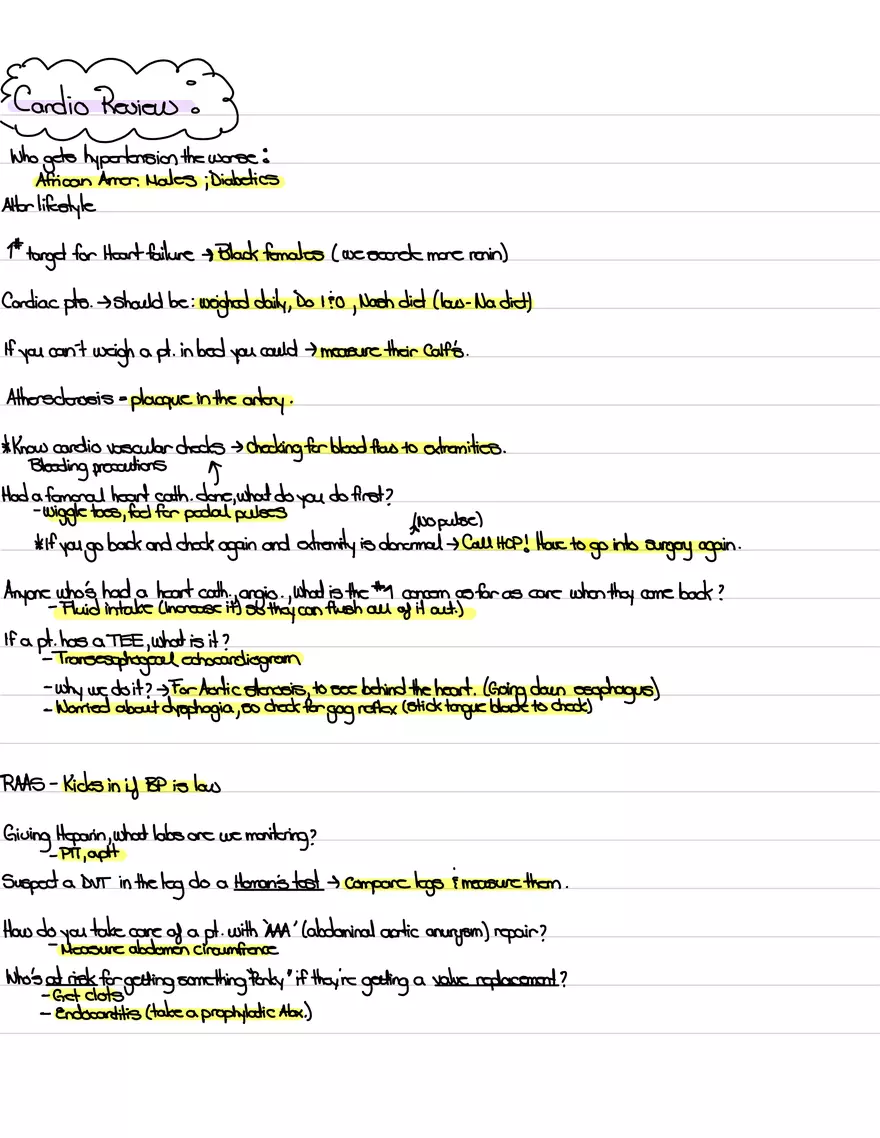 Cardio Review:
Who gets hypertension the worse:
African Amer. Males ; Diabetics
Alter lifestyle
1# target for Heart failure → Black females (we secrete more renin)
Cardiac pts. → should be: weighed daily, Do I&O, Nash diet (low-Na diet)
If you can't weigh a pt. in bed you could → measure their Calf's.
Atherosclerosis = placque in the artery.
*Know cardio vascular checks → checking for blood flow to extremities.
Bleeding precautions ↑
Had a femoral heart cath. done, what do you do first?
- wiggle toes, feel for pedal pulses
(No pulse)
*If you go back and check again and extremity is abnormal → Call HCP! Have to go into surgery again.
Anyone who's had a heart cath., angio., what is the #1 concern as far as care when they come back?
- Fluid intake (Increase it) so they can flush all of it out.)
If a pt. has a TEE, what is it?
- Transesophageal echocardiogram
- why we do it? → For Aortic stenosis, to see behind the heart. (Going down esophagus)
- Worried about dysphagia, so check for gag reflex (stick tongue blade to check)
RAAS - Kicks in if BP is low
Giving Heparin, what labs are we monitoring?
- PTT, aptt
Suspect a DVT in the leg do a Homan's test → Compare legs & measure them.
How do you take care of a pt. with 'AAA' (abdominal aortic anurysm) repair?
- Measure abdomen circumfrence
Who's at risk for getting something "Penky" if they're getting a valve replacement?
- Get clots
- Endocarditis (take a prophylatic Abx.)